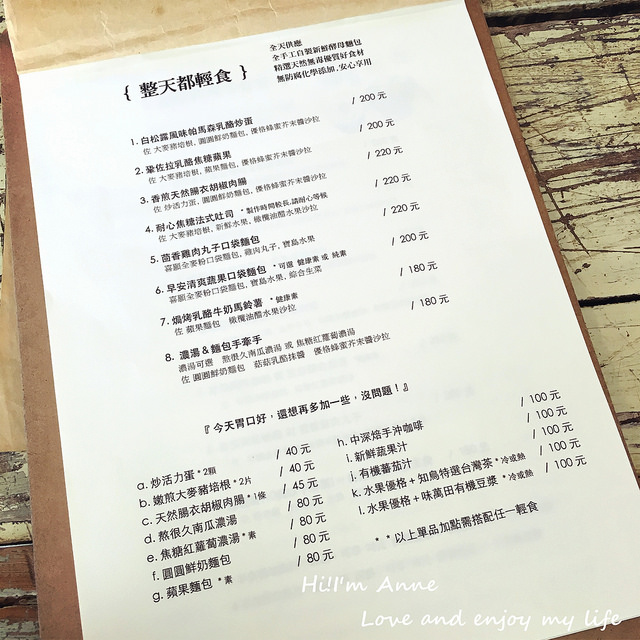 { 整天都輕食 }
全天供應
全手工自製新鮮酵母麵包
精選天然無毒優質好食材
無防腐化學添加,安心享用
1. 白松露風味帕馬森乳酪炒蛋 / 200 元
佐 大麥豬培根, 圓圓鮮奶麵包, 優格蜂蜜芥末醬沙拉
2. 鞏佐拉乳酪焦糖蘋果 / 200 元
佐 大麥豬培根, 蘋果麵包, 優格蜂蜜芥末醬沙拉
3. 香煎天然腸衣胡椒肉腸 / 220 元
佐 炒活力蛋, 圓圓鮮奶麵包, 優格蜂蜜芥末醬沙拉
4. 耐心焦糖法式吐司 *製作時間較長,請耐心等候 / 220 元
佐 大麥豬培根, 新鮮水果, 橄欖油醋水果沙拉
5. 茴香雞肉丸子口袋麵包 / 220 元
喜願全麥粉口袋麵包, 雞肉丸子, 寶島水果
6. 早安清爽蔬果口袋麵包 *可選 健康素 或 純素 / 200 元
喜願全麥粉口袋麵包, 寶島水果, 綜合生菜
7. 焗烤乳酪牛奶馬鈴薯 *健康素 / 180 元
佐 蘋果麵包 橄欖油醋水果沙拉
8. 濃湯 & 麵包手牽手 / 180 元
濃湯可選 熬很久南瓜濃湯 或 焦糖紅蘿蔔濃湯
佐 圓圓鮮奶麵包 菇菇乳酪抹醬 優格蜂蜜芥末醬沙拉
『今天胃口好，還想再多加一些，沒問題！』
a. 炒活力蛋 *2顆 / 40 元
b. 嫩煎大麥豬培根 *2片 / 40 元
c. 天然腸衣胡椒肉腸 *1條 / 45 元
d. 熬很久南瓜濃湯 / 80 元
e. 焦糖紅蘿蔔濃湯 *素 / 80 元
f. 圓圓鮮奶麵包 / 80 元
g. 蘋果麵包 *素 / 80 元
h. 中深焙手沖咖啡 / 100 元
i. 新鮮蔬果汁 / 100 元
j. 有機蕃茄汁 / 100 元
k. 水果優格 + 知鳥特選台灣茶 *冷或熱 / 100 元
l. 水果優格 + 味萬田有機豆漿 *冷或熱 / 100 元
* * 以上單品加點需搭配任一輕食
Hi!I'm Anne
Love and enjoy my life